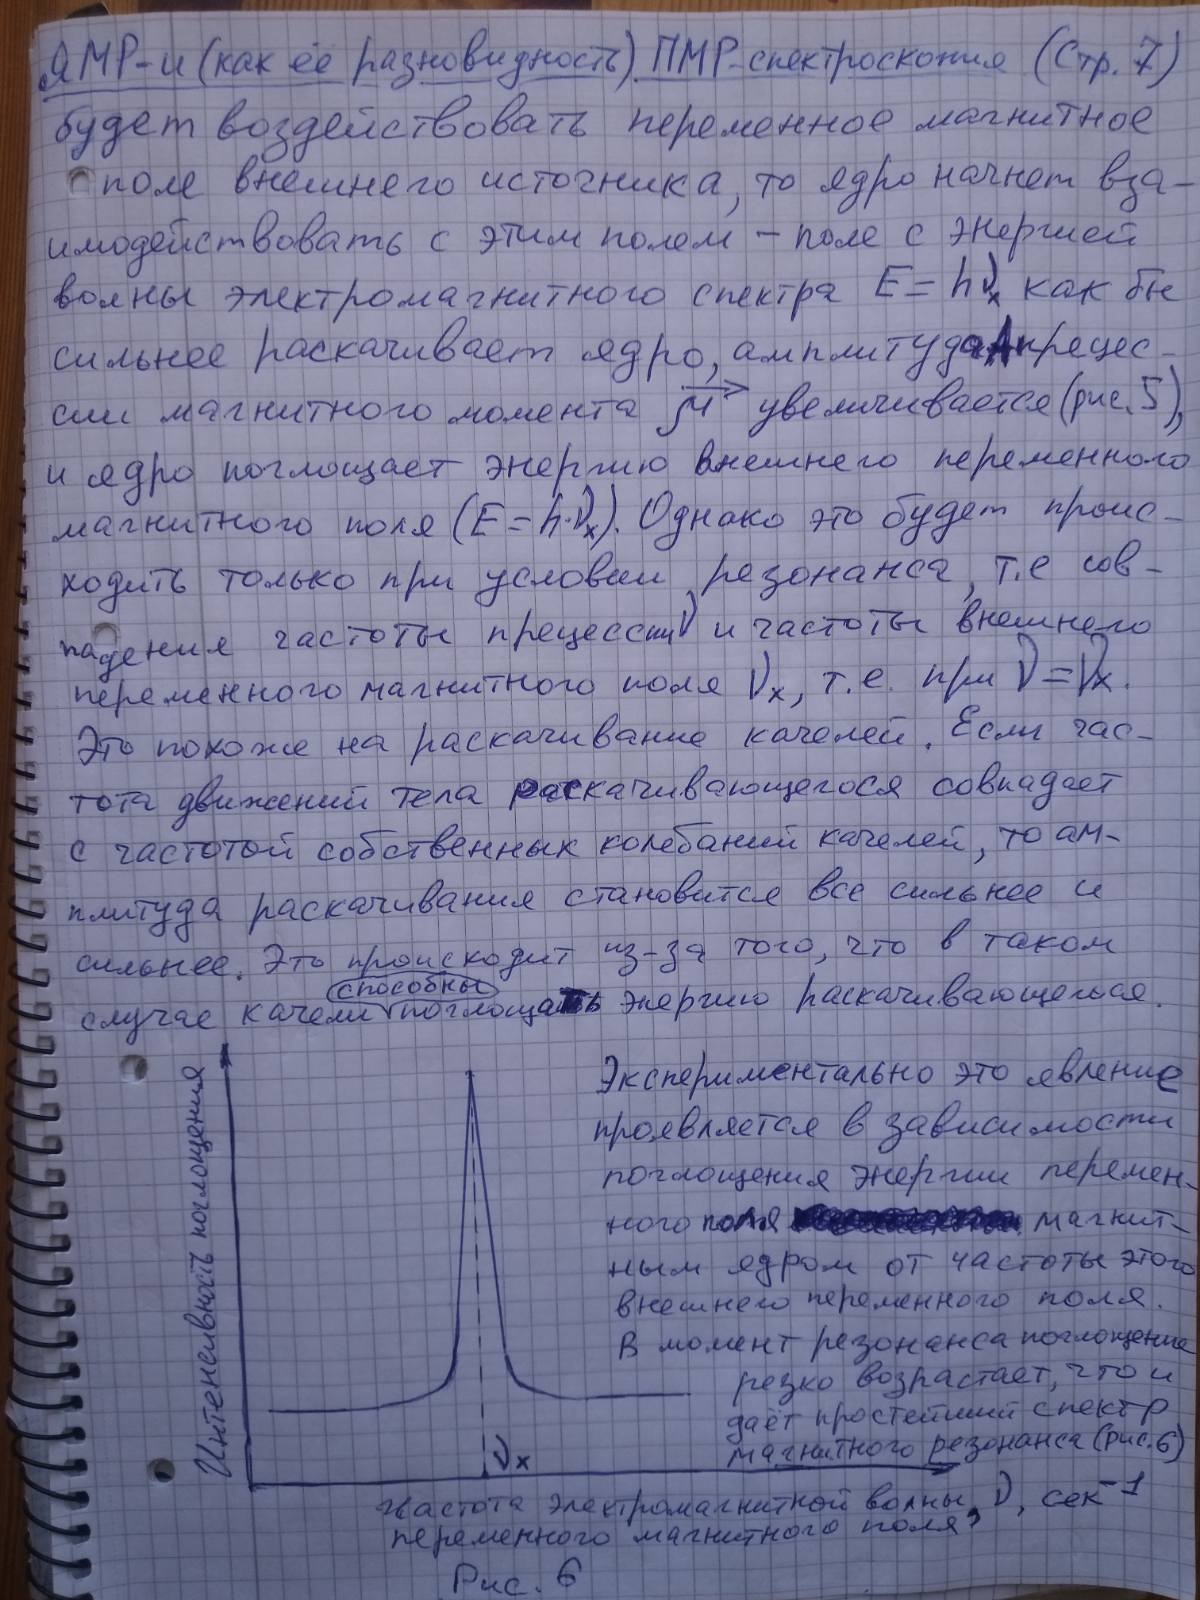 ЯМР-и (как её разновидность) ПМР-спектроскопия (Стр. 7)
будет воздействовать переменное магнитное
поле внешнего источника, то ядро начнет вза-
имодействовать с этим полем – поле с энергией
волны электромагнитного спектра E = hνx как бы
сильнее раскачивает ядро, амплитуда A прецес-
сии магнитного момента μ⃗ увеличивается (рис. 5),
и ядро поглощает энергию внешнего переменного
магнитного поля (E = h·νx). Однако это будет проис-
ходить только при условии резонанса, т.е сов-
падения частоты прецессии ν и частоты внешнего
переменного магнитного поля νx, т.е. при ν = νx.
Это похоже на раскачивание качелей. Если час-
тота движений тела раскачивающегося совпадает
с частотой собственных колебаний качелей, то ам-
плитуда раскачивания становится все сильнее и
сильнее. Это происходит из-за того, что в таком
случае качели способны поглощать энергию раскачивающегося.
Экспериментально это явление
проявляется в зависимости
поглощения энергии перемен-
ного поля магнит-
ным ядром от частоты этого
внешнего переменного поля.
В момент резонанса поглощение
резко возрастает, что и
даёт простейший спектр
магнитного резонанса (рис. 6)
Интенсивность поглощения
νx
Частота электромагнитной волны, ν, сек⁻¹
переменного магнитного поля,
Рис. 6